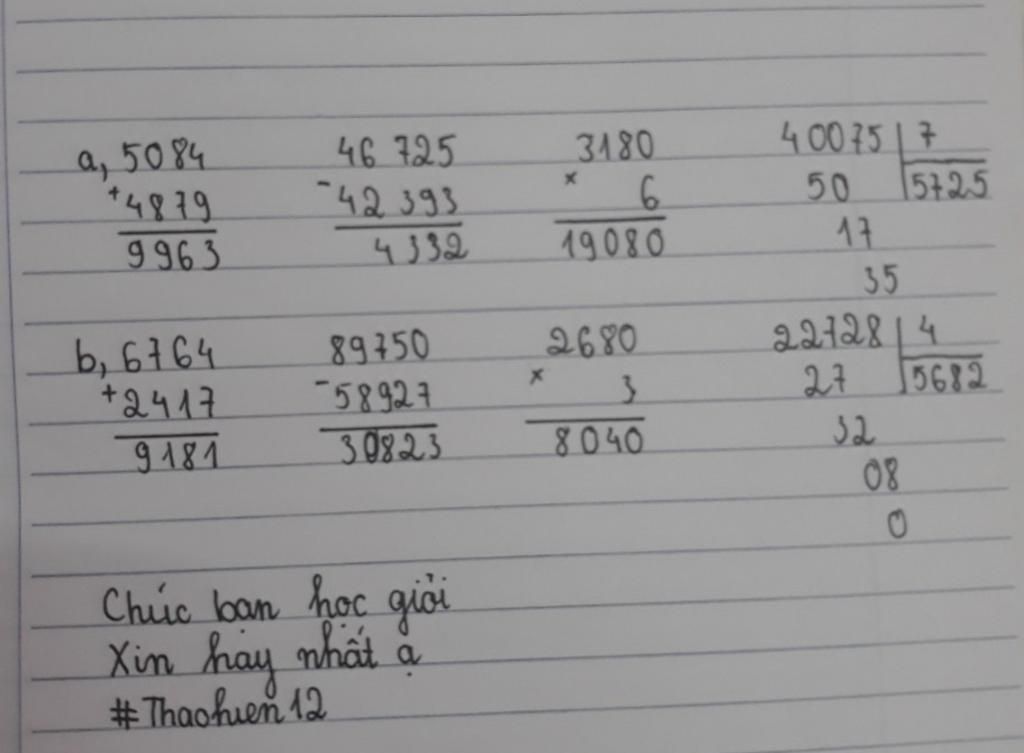 a, 5084 46 725 3180 40075 7
+ 4879 - 42 393 x 6 50 5725
9963 4332 19080 17
35
b, 6764 89750 2680 22728 4
+ 2417 - 58927 x 3 27 5682
9181 30823 8040 32
08
0
Chúc bạn học giỏi
Xin hay nhất ạ
#Thaohien12